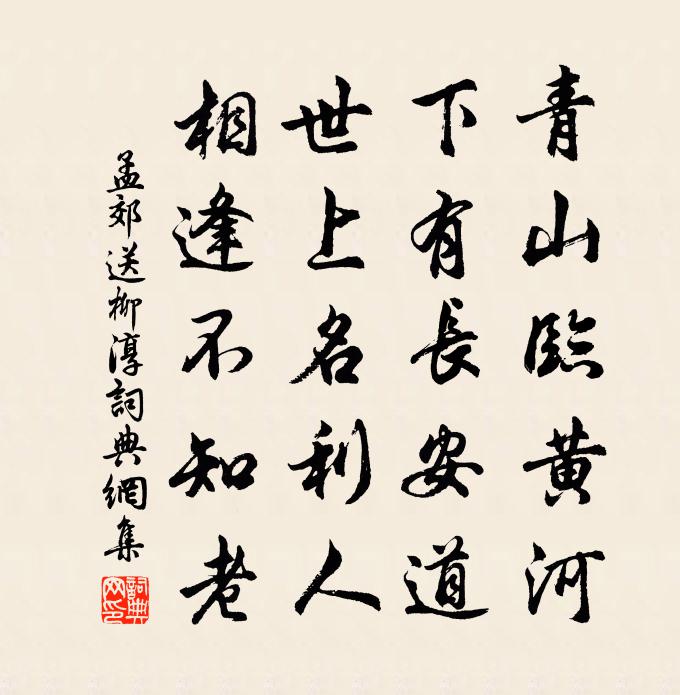 青山臨黃河
下有長安道
世上名利人
相逢不知老
孟郊送柳淳詞典網集
詞典
网印